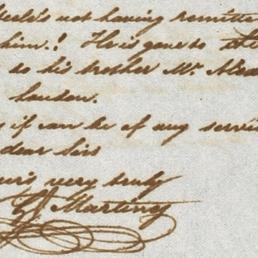 not having remitted
him.! He is gone to
to his brother Mr.
London.
if can be of any service
dear sirs
very truly
Martiny